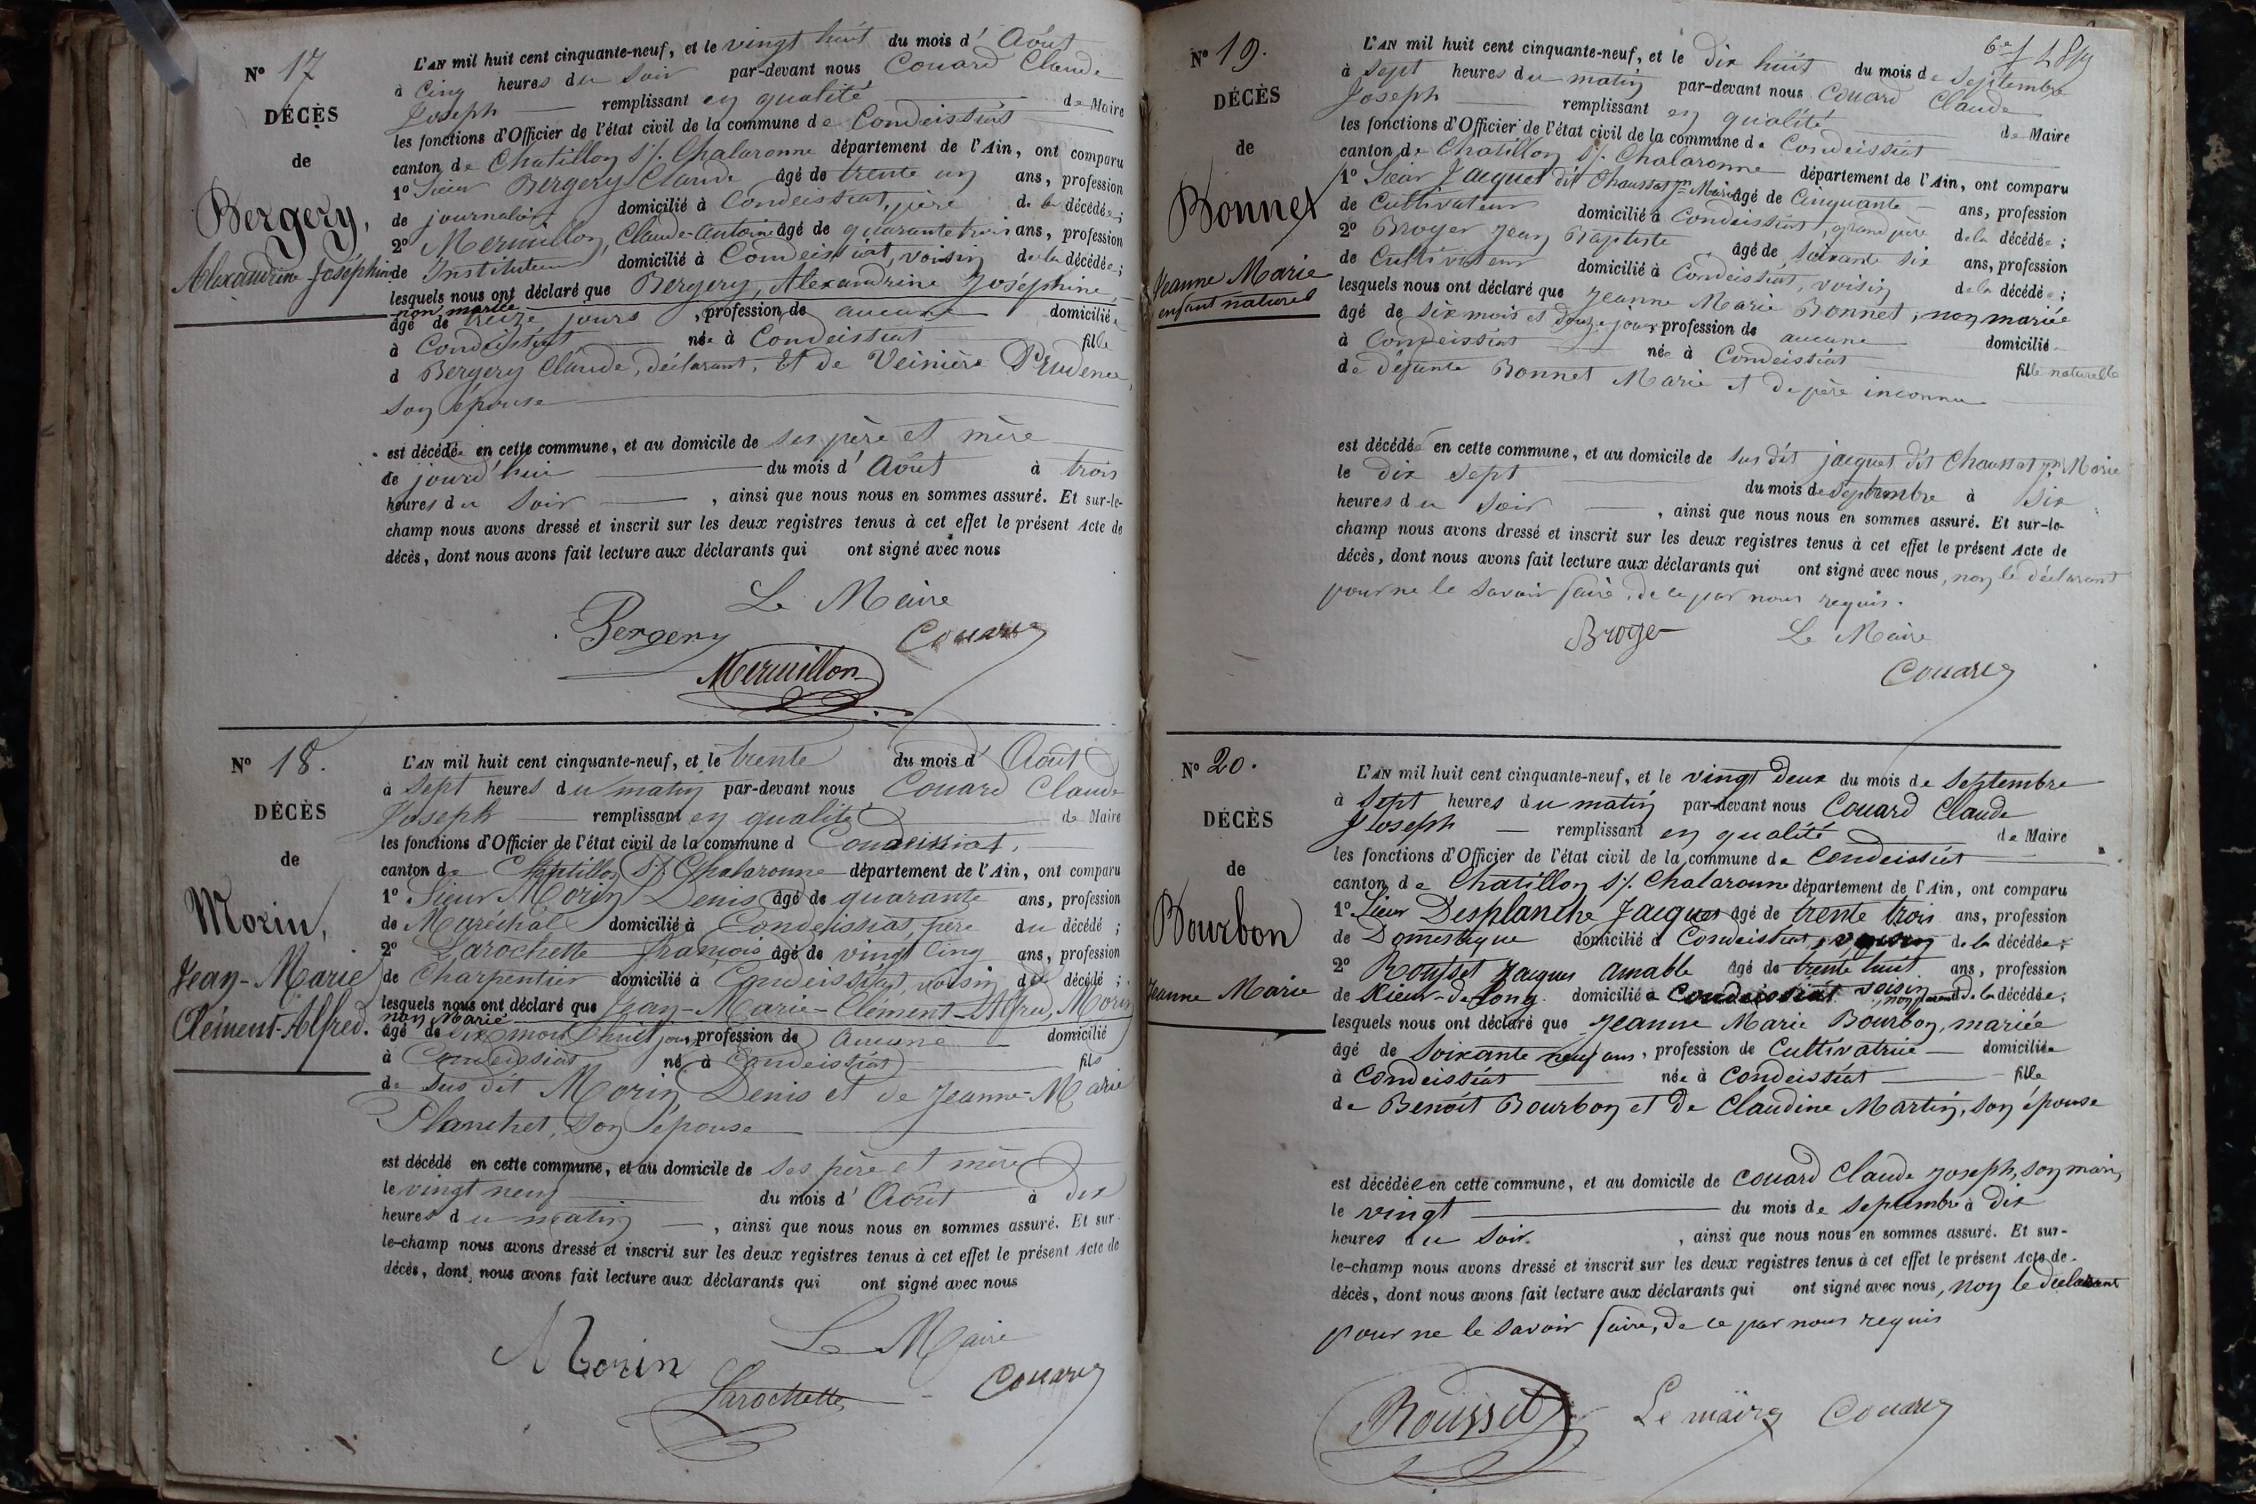 N° 17
DÉCÈS
de
Bergery,
Alexandrine Joséphine
L'AN mil huit cent cinquante-neuf, et le vingt huit du mois d' Août
à cinq heures du soir par-devant nous Couard Claude
Joseph remplissant en qualité de Maire
les fonctions d'Officier de l'état civil de la commune de Condeissiat
canton de Chatillon s/. Chalaronne département de l'Ain, ont comparu
1° Sieur Bergery Claude âgé de trente un ans, profession
de journalier domicilié à Condeissiat, père de la décédée;
2° Mermillon, Claude-Antoine âgé de quarante trois ans, profession
de Instituteur domicilié à Condeissiat, voisin de la décédée;
lesquels nous ont déclaré que Bergery, Alexandrine Joséphine,
non mariée
âgé de treize jours, profession de aucune domiciliée
à Condeissiat née à Condeissiat fille
d Bergery Claude, déclarant, Et de Veinière Prudence,
son épouse
est décédée en cette commune, et au domicile de ses père et mère
de jourd'hui du mois d' Août à trois
heures du soir, ainsi que nous nous en sommes assuré. Et sur-le-
champ nous avons dressé et inscrit sur les deux registres tenus à cet effet le présent Acte de
décès, dont nous avons fait lecture aux déclarants qui ont signé avec nous
Le Maire
Bergery Couard
Mermillon
N° 18.
DÉCÈS
de
Morin,
Jean-Marie
Clément-Alfred.
L'AN mil huit cent cinquante-neuf, et le trente du mois d' Août
à sept heures du matin par-devant nous Couard Claude
Joseph remplissant en qualité de Maire
les fonctions d'Officier de l'état civil de la commune d Condeissiat,
canton de Chatillon s/. Chalaronne département de l'Ain, ont comparu
1° Sieur Morin Denis âgé de quarante ans, profession
de Maréchal domicilié à Condeissiat, père du décédé;
2° Larochette françois âgé de vingt cinq ans, profession
de Charpentier domicilié à Condeissiat, voisin du décédé;
lesquels nous ont déclaré que Jean-Marie-Clément Alfred, Morin
non marié
âgé de six mois huit jours profession de aucune domicilié
à Condeissiat né à Condeissiat fils
de Sus dit Morin Denis et de Jeanne-Marie
Planchet, son épouse
est décédé en cette commune, et au domicile de ses père et mère
le vingt neuf du mois d' Août à dix
heures du matin, ainsi que nous nous en sommes assuré. Et sur-
le-champ nous avons dressé et inscrit sur les deux registres tenus à cet effet le présent Acte de
décès, dont nous avons fait lecture aux déclarants qui ont signé avec nous
Le Maire
Morin
Larochette Couard
N° 19.
DÉCÈS
de
Bonnet
Jeanne Marie
enfant naturel
L'AN mil huit cent cinquante-neuf, et le dix huit du mois de septembre
à sept heures du matin par-devant nous Couard Claude
Joseph remplissant en qualité de Maire
les fonctions d'Officier de l'état civil de la commune de Condeissiat
canton de Chatillon s/. Chalaronne département de l'Ain, ont comparu
1° Sieur Jacquet dit Chaussat Jn Marie âgé de Cinquante ans, profession
de Cultivateur domicilié à Condeissiat, grand père de la décédée;
2° Broyer Jean Baptiste âgé de soixante six ans, profession
de Cultivateur domicilié à Condeissiat, voisin de la décédée;
lesquels nous ont déclaré que Jeanne Marie Bonnet, non mariée
âgé de six mois et douze jours profession de aucune domicilié
à Condeissiat née à Condeissiat fille naturelle
de défunte Bonnet Marie et de père inconnu
est décédée en cette commune, et au domicile de sus dit jacquet dit Chaussat Jn Marie
le dix sept du mois de septembre à six
heures du soir, ainsi que nous nous en sommes assuré. Et sur-le-
champ nous avons dressé et inscrit sur les deux registres tenus à cet effet le présent Acte de
décès, dont nous avons fait lecture aux déclarants qui ont signé avec nous, non le déclarant
pour ne le savoir faire, de ce par nous requis.
Broyer Le Maire
Couard
N° 20.
DÉCÈS
de
Bourbon
Jeanne Marie
L'AN mil huit cent cinquante-neuf, et le vingt deux du mois de septembre
à sept heures du matin par-devant nous Couard Claude
Joseph remplissant en qualité de Maire
les fonctions d'Officier de l'état civil de la commune de Condeissiat
canton de Chatillon s/. Chalaronne département de l'Ain, ont comparu
1° Sieur Desplanche Jacques âgé de trente trois ans, profession
de Domestique domicilié à Condeissiat, voisin de la décédée;
2° Rousset Jacques amable âgé de trente huit ans, profession
de Sieur-de-long domicilié à Condeissiat voisin, non parent de la décédée;
lesquels nous ont déclaré que Jeanne Marie Bourbon, mariée
âgé de soixante neuf ans, profession de Cultivatrice domiciliée
à Condeissiat née à Condeissiat fille
de Benoît Bourbon et de Claudine Martin, son épouse
est décédée en cette commune, et au domicile de Couard Claude Joseph, son mari,
le vingt du mois de septembre à dix
heures du soir, ainsi que nous nous en sommes assuré. Et sur-
le-champ nous avons dressé et inscrit sur les deux registres tenus à cet effet le présent Acte de
décès, dont nous avons fait lecture aux déclarants qui ont signé avec nous, non le déclarant
pour ne le savoir faire, de ce par nous requis
Rousset Le maire Couard